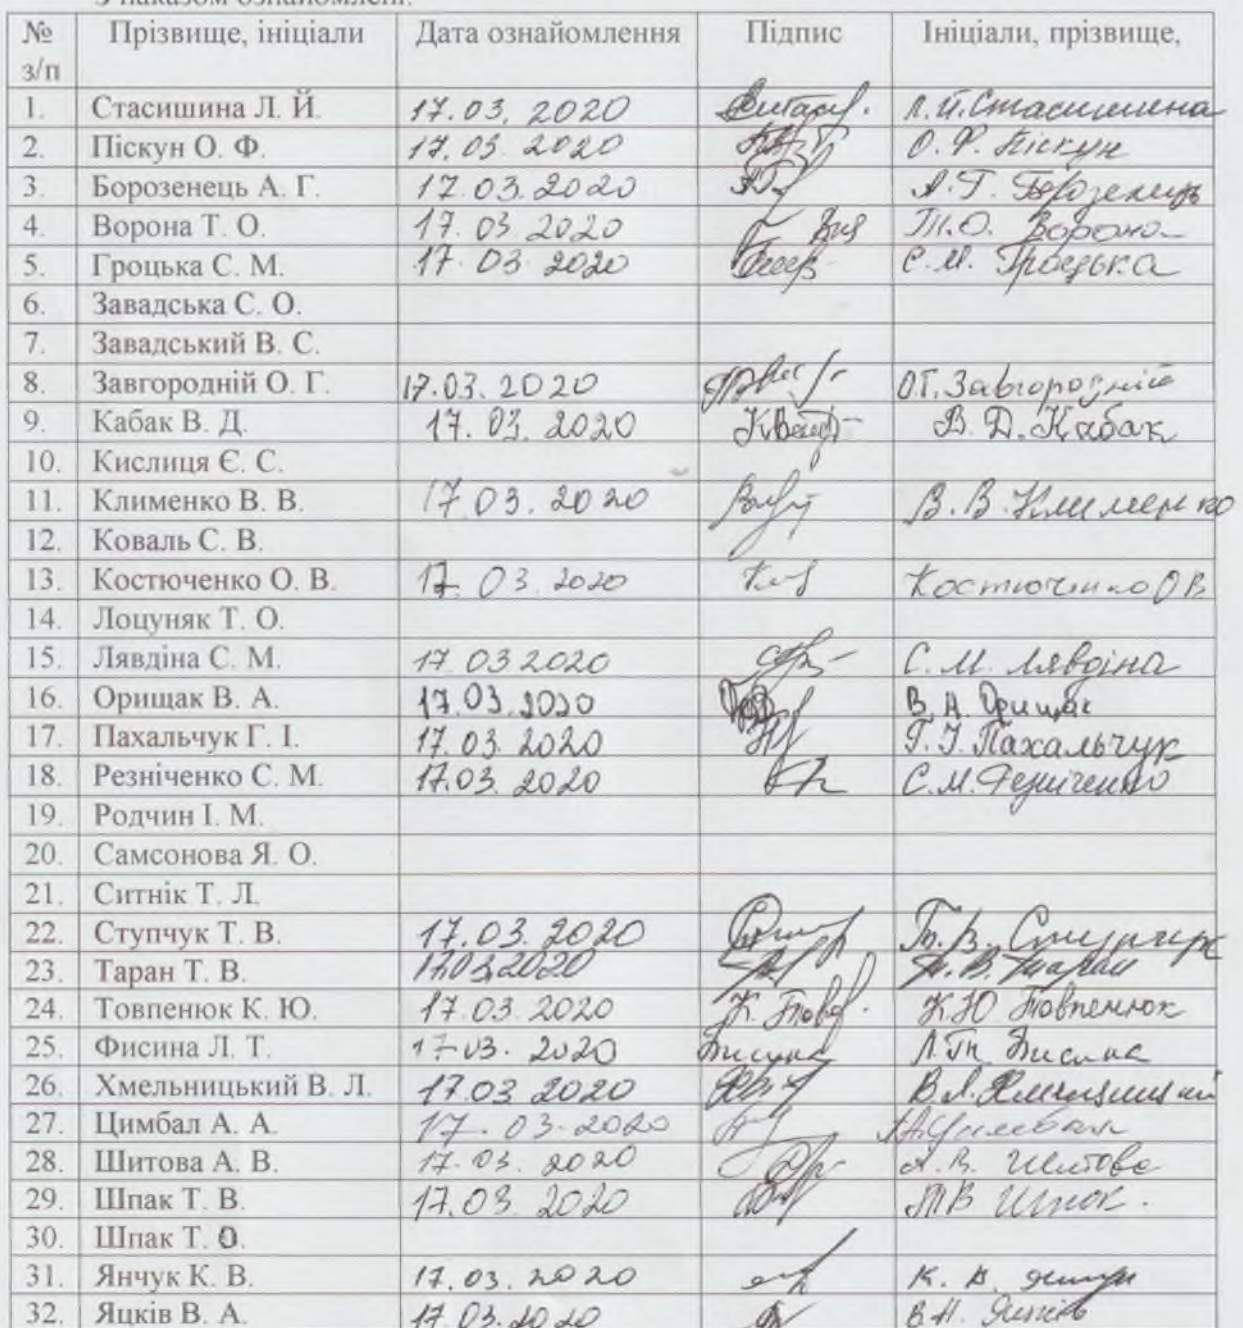 З наказом ознайомлені:
№ з/п Прізвище, ініціали Дата ознайомлення Підпис Ініціали, прізвище,
1. Стасишина Л. Й. 17.03.2020 Л.Й.Стасишина
2. Піскун О. Ф. 17.03.2020 О.Ф. Піскун
3. Борозенець А. Г. 17.03.2020 А.Г. Борозенець
4. Ворона Т. О. 17.03.2020 Т.О. Ворона
5. Гроцька С. М. 17.03.2020 С.М. Гроцька
6. Завадська С. О.
7. Завадський В. С.
8. Завгородній О. Г. 17.03.2020 О.Г. Завгородній
9. Кабак В. Д. 17.03.2020 В. Д. Кабак
10. Кислиця Є. С.
11. Клименко В. В. 17 03.2020 В.В. Клименко
12. Коваль С. В.
13. Костюченко О. В. 17.03.2020 Костюченко О В
14. Лоцуняк Т. О.
15. Лявдіна С. М. 17 03 2020 С.М. Лявдіна
16. Орищак В. А. 17.03.2020 В. А. Орищак
17. Пахальчук Г. І. 17.03.2020 Г. І. Пахальчук
18. Резніченко С. М. 17.03.2020 С.М. Резніченко
19. Родчин І. М.
20. Самсонова Я. О.
21. Ситнік Т. Л.
22. Ступчук Т. В. 17.03.2020 Т.В. Ступчук
23. Таран Т. В. 17.03.2020 Т.В. Таран
24. Товпенюк К. Ю. 17.03.2020 К. Товп. К.Ю Товпенюк
25. Фисина Л. Т. 17.03.2020 Фисина Л.Т. Фисина
26. Хмельницький В. Л. 17.03 2020 В.Л. Хмельницький
27. Цимбал А. А. 17.03.2020 А.А. Цимбал
28. Шитова А. В. 17.03.2020 А.В. Шитова
29. Шпак Т. В. 17.03.2020 Т В Шпак.
30. Шпак Т. О.
31. Янчук К. В. 17.03.2020 К. В. Янчук
32. Яцків В. А. 17.03.2020 В.А. Яцків